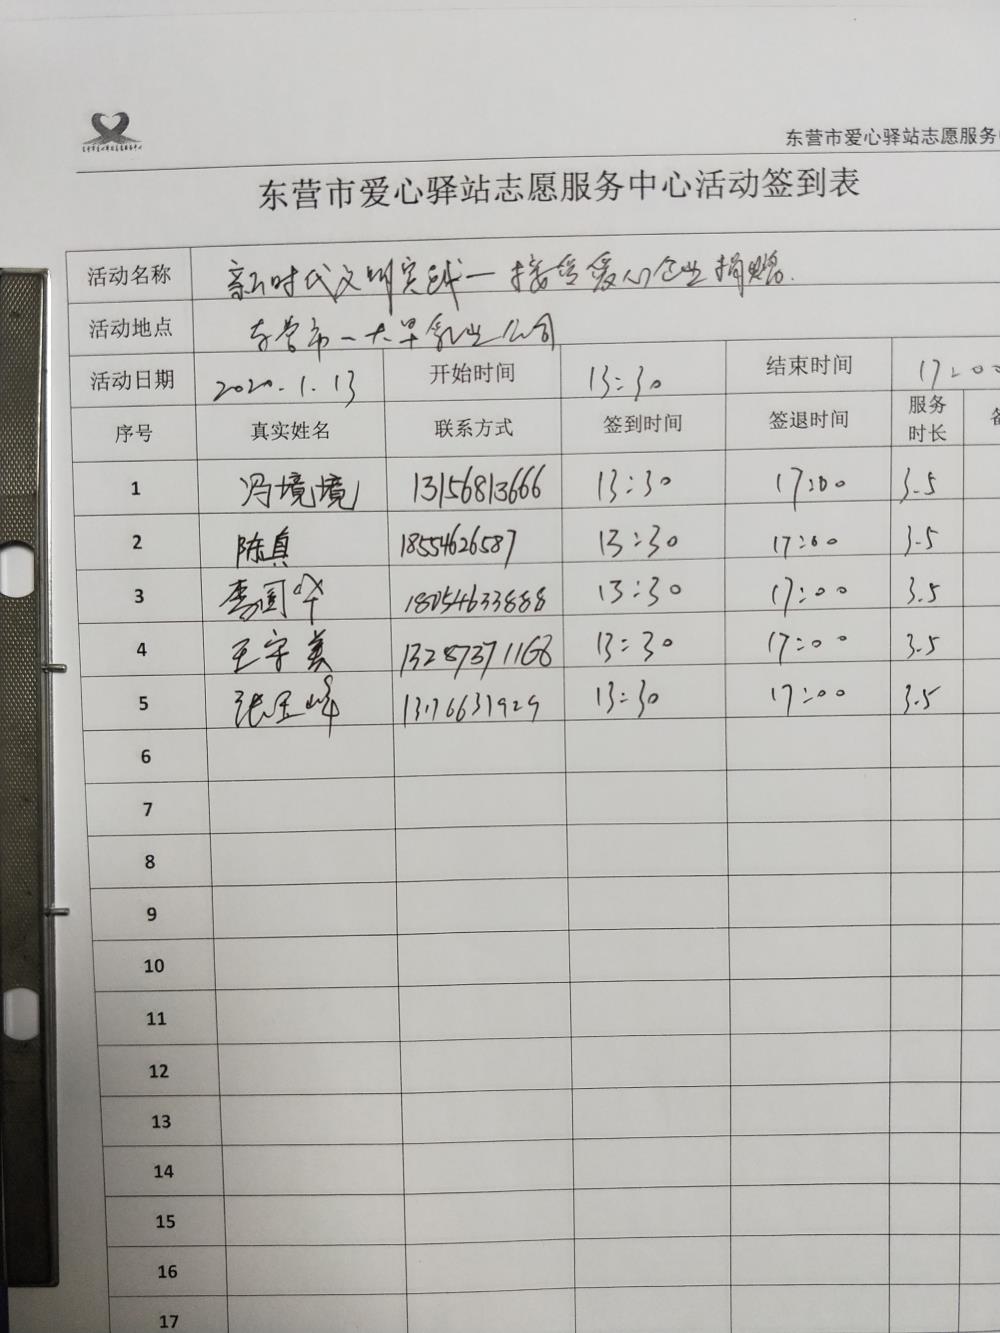 东营市爱心驿站志愿服务
东营市爱心驿站志愿服务中心活动签到表
活动名称 新时代文明实践一接受爱心企业捐赠.
活动地点 东营市一大早乳业公司
活动日期 2020.1.13 开始时间 13:30 结束时间 17:00
序号 真实姓名 联系方式 签到时间 签退时间 服务时长
1 冯境境 13156813666 13:30 17:00 3.5
2 陈真 18554626587 13:30 17:00 3.5
3 李国华 18054633888 13:30 17:00 3.5
4 王守美 13287371166 13:30 17:00 3.5
5 张玉峰 13176631929 13:30 17:00 3.5
6
7
8
9
10
11
12
13
14
15
16
17